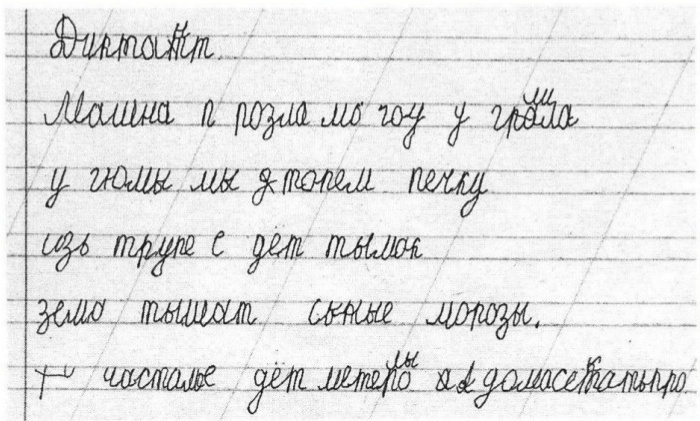 Диктант.
Машина п розла мо гоу у грала
у гюмы мы дтопем печку
изь трупе с дёт тымок
земо тышат сыные морозы.
часталые дёт метелы домасекатыпро